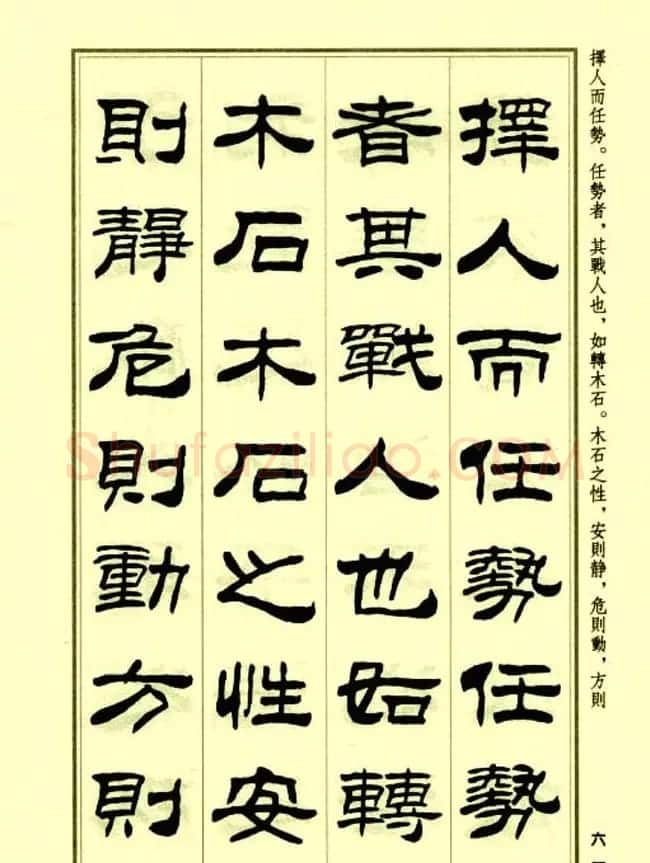 擇人而任勢。任勢者，其戰人也，如轉木石。木石之性，安則静，危則動，方則
擇人而任勢任勢
者其戰人也如轉
木石木石之性安
則靜危則動方則
Shufaziliao.COM
六